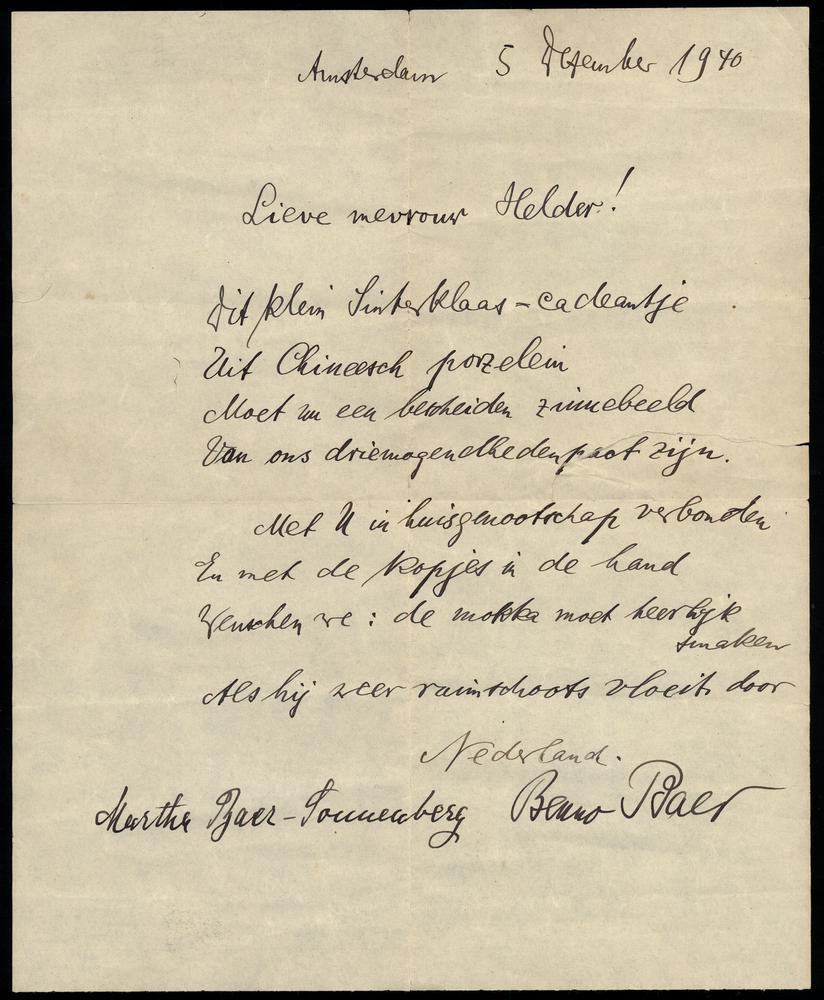 Amsterdam 5 Dezember 1940
Lieve mevrouw Helder!
Dit klein Sinterklaas-cadeautje
Uit Chineesch porzelein
Moet nu een bescheiden zinnebeeld
Van ons driemogendhedenpact zijn.
Met U in huisgenootschap verbonden
En met de kopjes in de hand
Wenschen we: de mokka moet heerlijk
smaken
Als hij weer ruimschoots vloeit door
Nederland.
Martha Baer-Sonnenberg Benno Baer